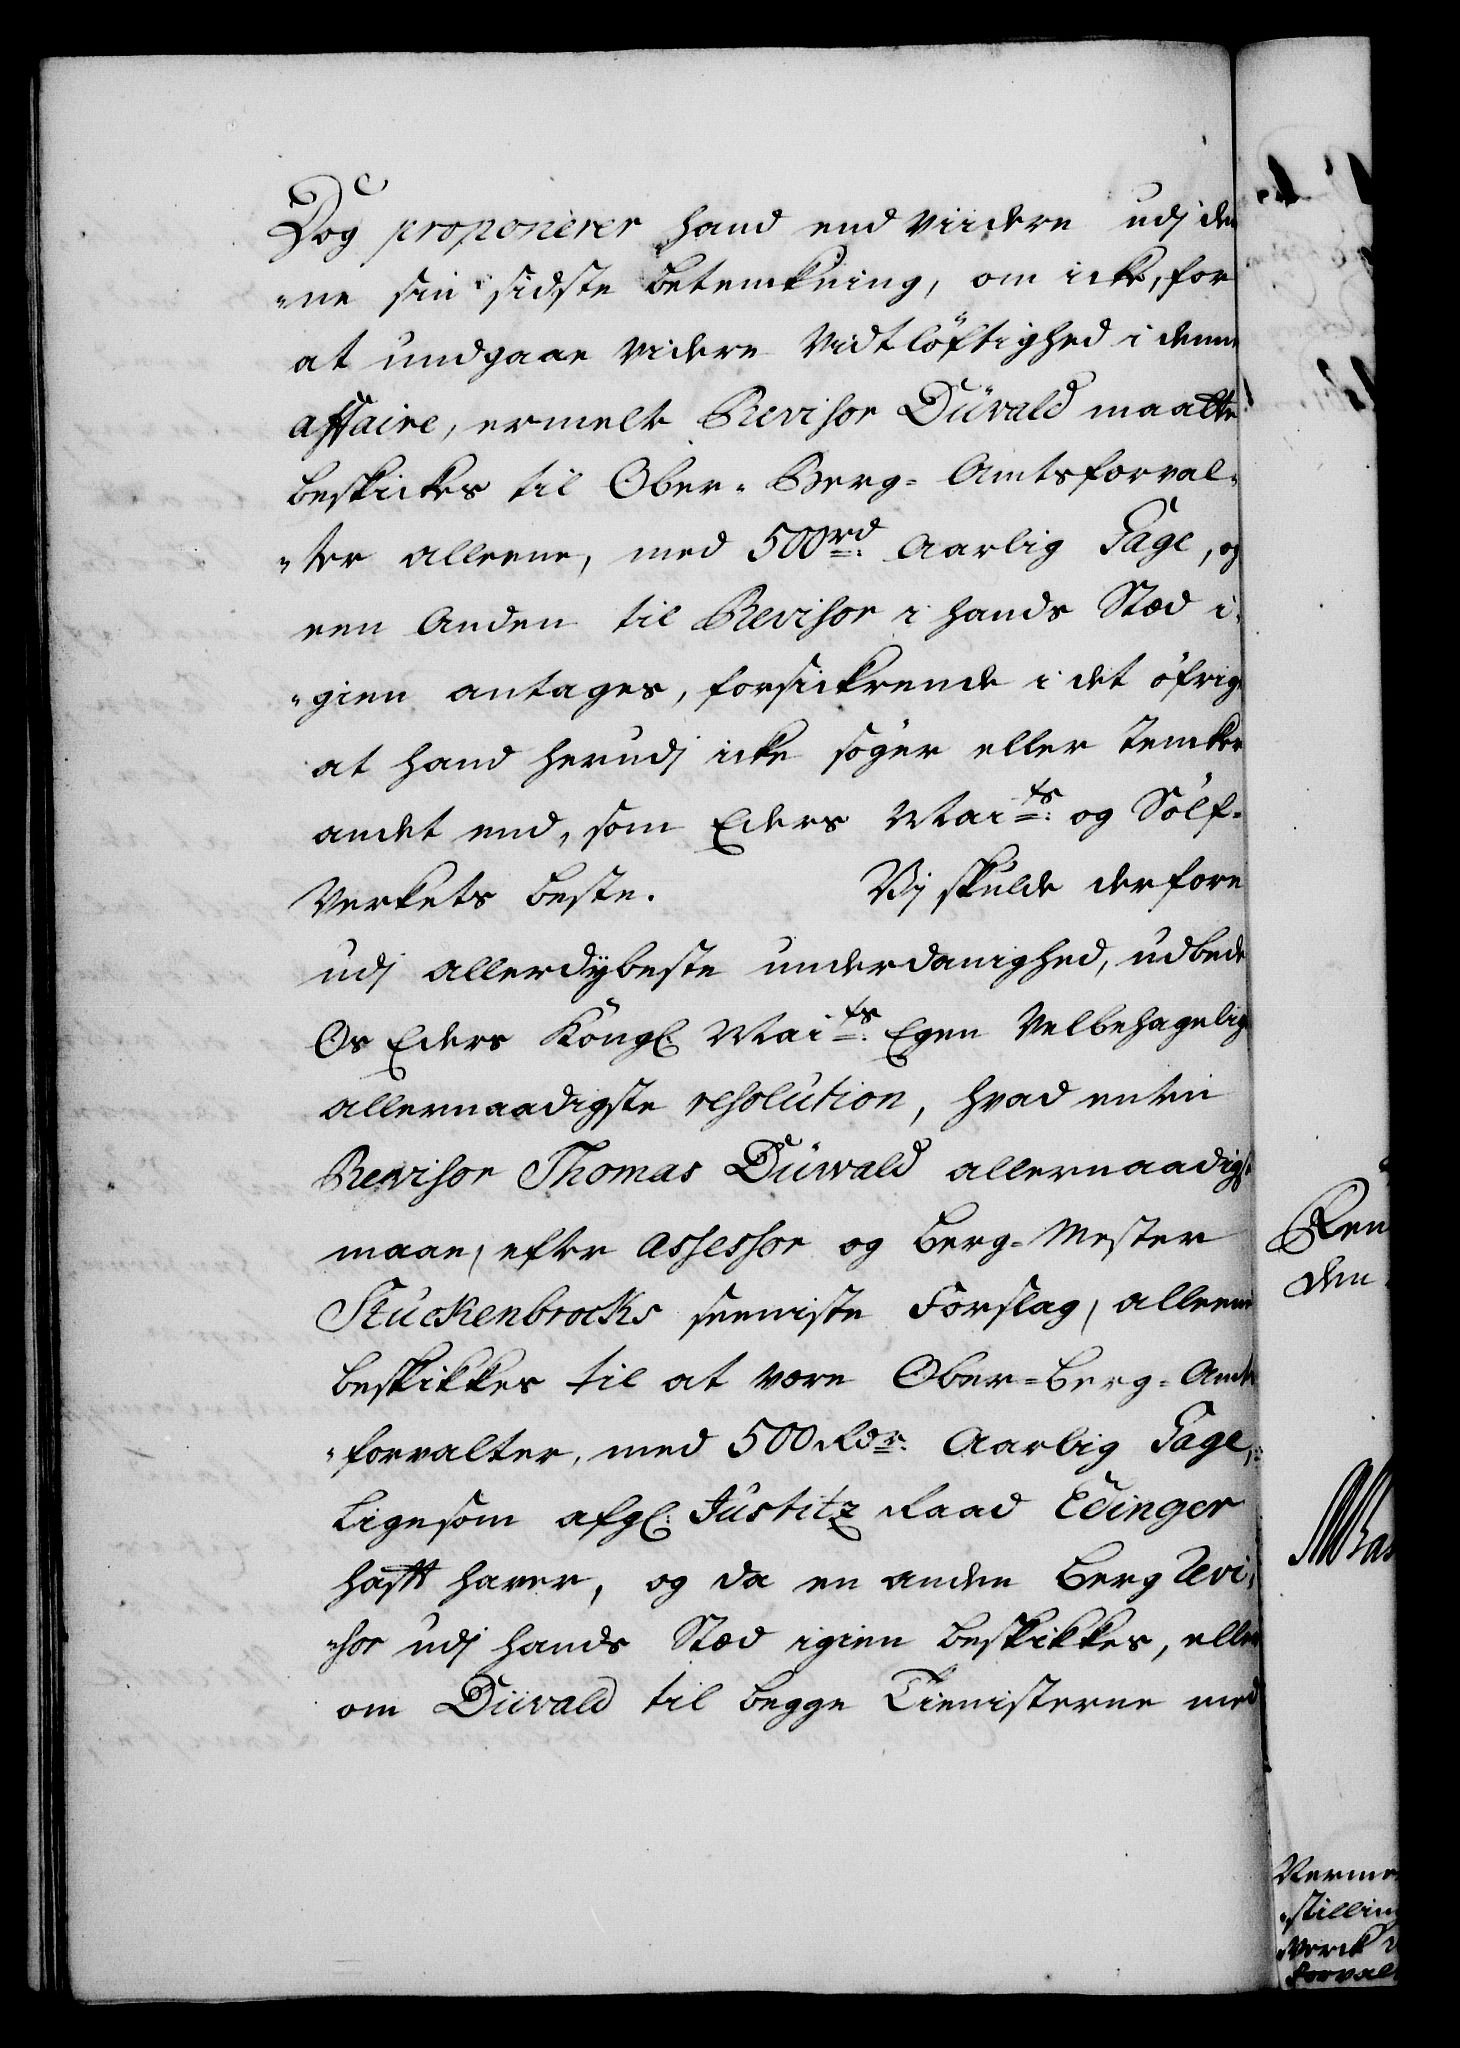 Dog proponerer hand end viidere udj den
"ne sin sidste betenkning, om icke, for
at undgaae videre Vidtløftighed i denne
affaire, ermelte Revisor Düvald maatte
beskickes til Ober-Berg-Amtsforval-
"ter alleene, med 500 rd Aarlig Gage, og
een Anden til Revisor i hands Stæd i-
"gien antages, forsickrende i det øfrige
at hand herudj icke søger eller tencker
andet end, som Eders Maits og Sølf-
Verkets beste. Vj skulde derfore
udj allerdÿbeste underdanighed, udbede
Os Eders Kongl. Maits Egen Velbehagelige
allernaadigste resolution, hvad enten
Revisor Thomas Düwald allernaadigst
maae, efter Assessor og Berg-Mester
Stuckenbrocks seeniste Forslag, alleene
beskikkes til at være Ober-Berg-Amts
"forvalter, med 500 Rdr. Aarlig Gage,
Ligesom afgl. Justitz Raad Edinger
hafft haver, og da en anden Berg Revi-
"sor udj hands Stæd igien beskikkes, eller
om Düvald til begge Tienisterne med
Ren
den
Verme
"stilling
Werck
forval